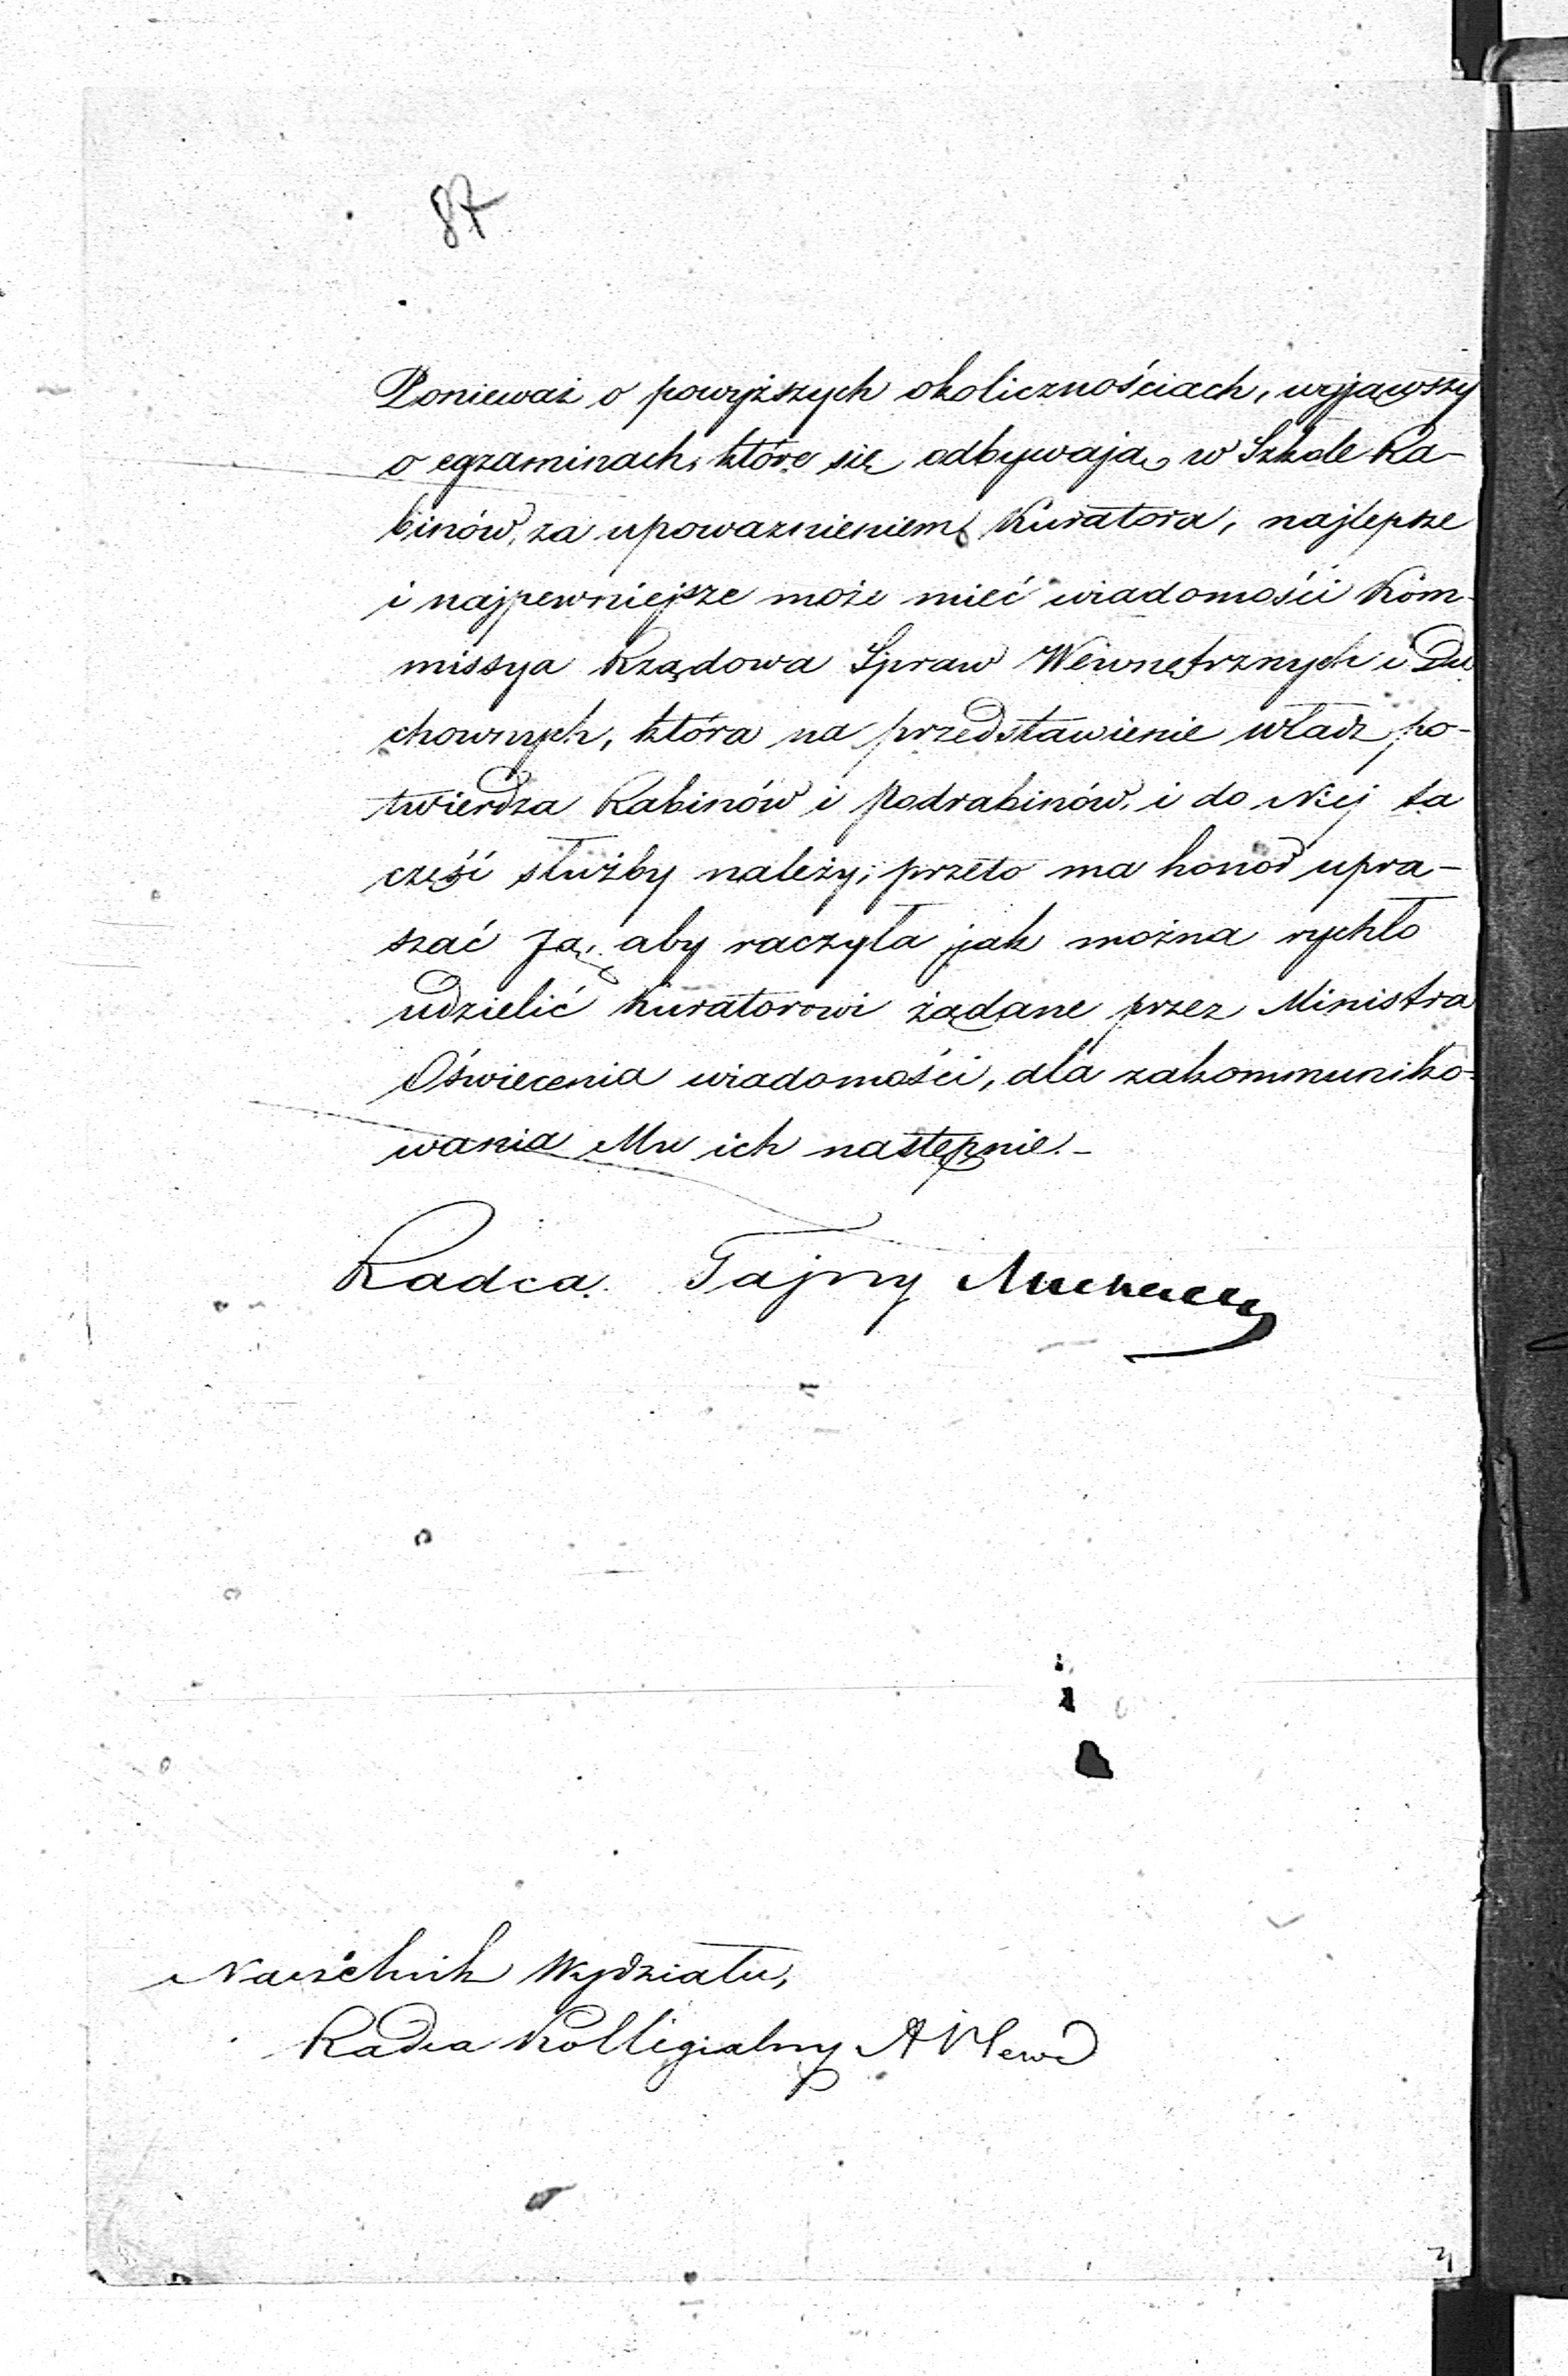 87
Ponieważ o powyższych okolicznościach, wyjąwszy
o egzaminach, które się odbywają w Szkole Ra-
binów, za upoważnieniem Kuratora, najlepsze
i najpewniejsze może mieć wiadomości Kom-
missya Rządowa Spraw Wewnętrznych i Du
chownych, która na przedstawienie władz po-
twierdza Rabinów i Podrabinów, i do Niej ta
część służby należy; przeto ma honor upra-
szać Ją, aby raczyła jak można rychło
udzielić Kuratorowi żądane przez Ministra
Oświecenia wiadomości, dla zakommuniko-
wania Mu ich następnie.-
Radca Tajny
Naczelnik Wydziału,
Radca Kollegialny